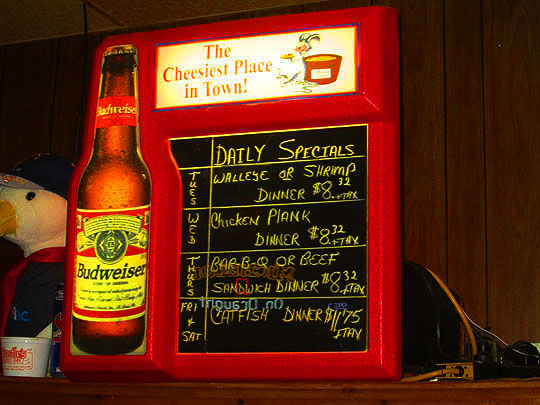 The
Cheesiest Place
in Town!
Budweiser
DAILY SPECIALS
TUES
WALLEYE OR SHRIMP
DINNER $8.32 +TAX
WED
CHICKEN PLANK
DINNER $8.32 +TAX
THURS
BAR-B-Q OR BEEF
SANDWICH DINNER $8.32 +TAX
On Draught
FRI & SAT
CATFISH DINNER $11.75
+TAX
Budweiser